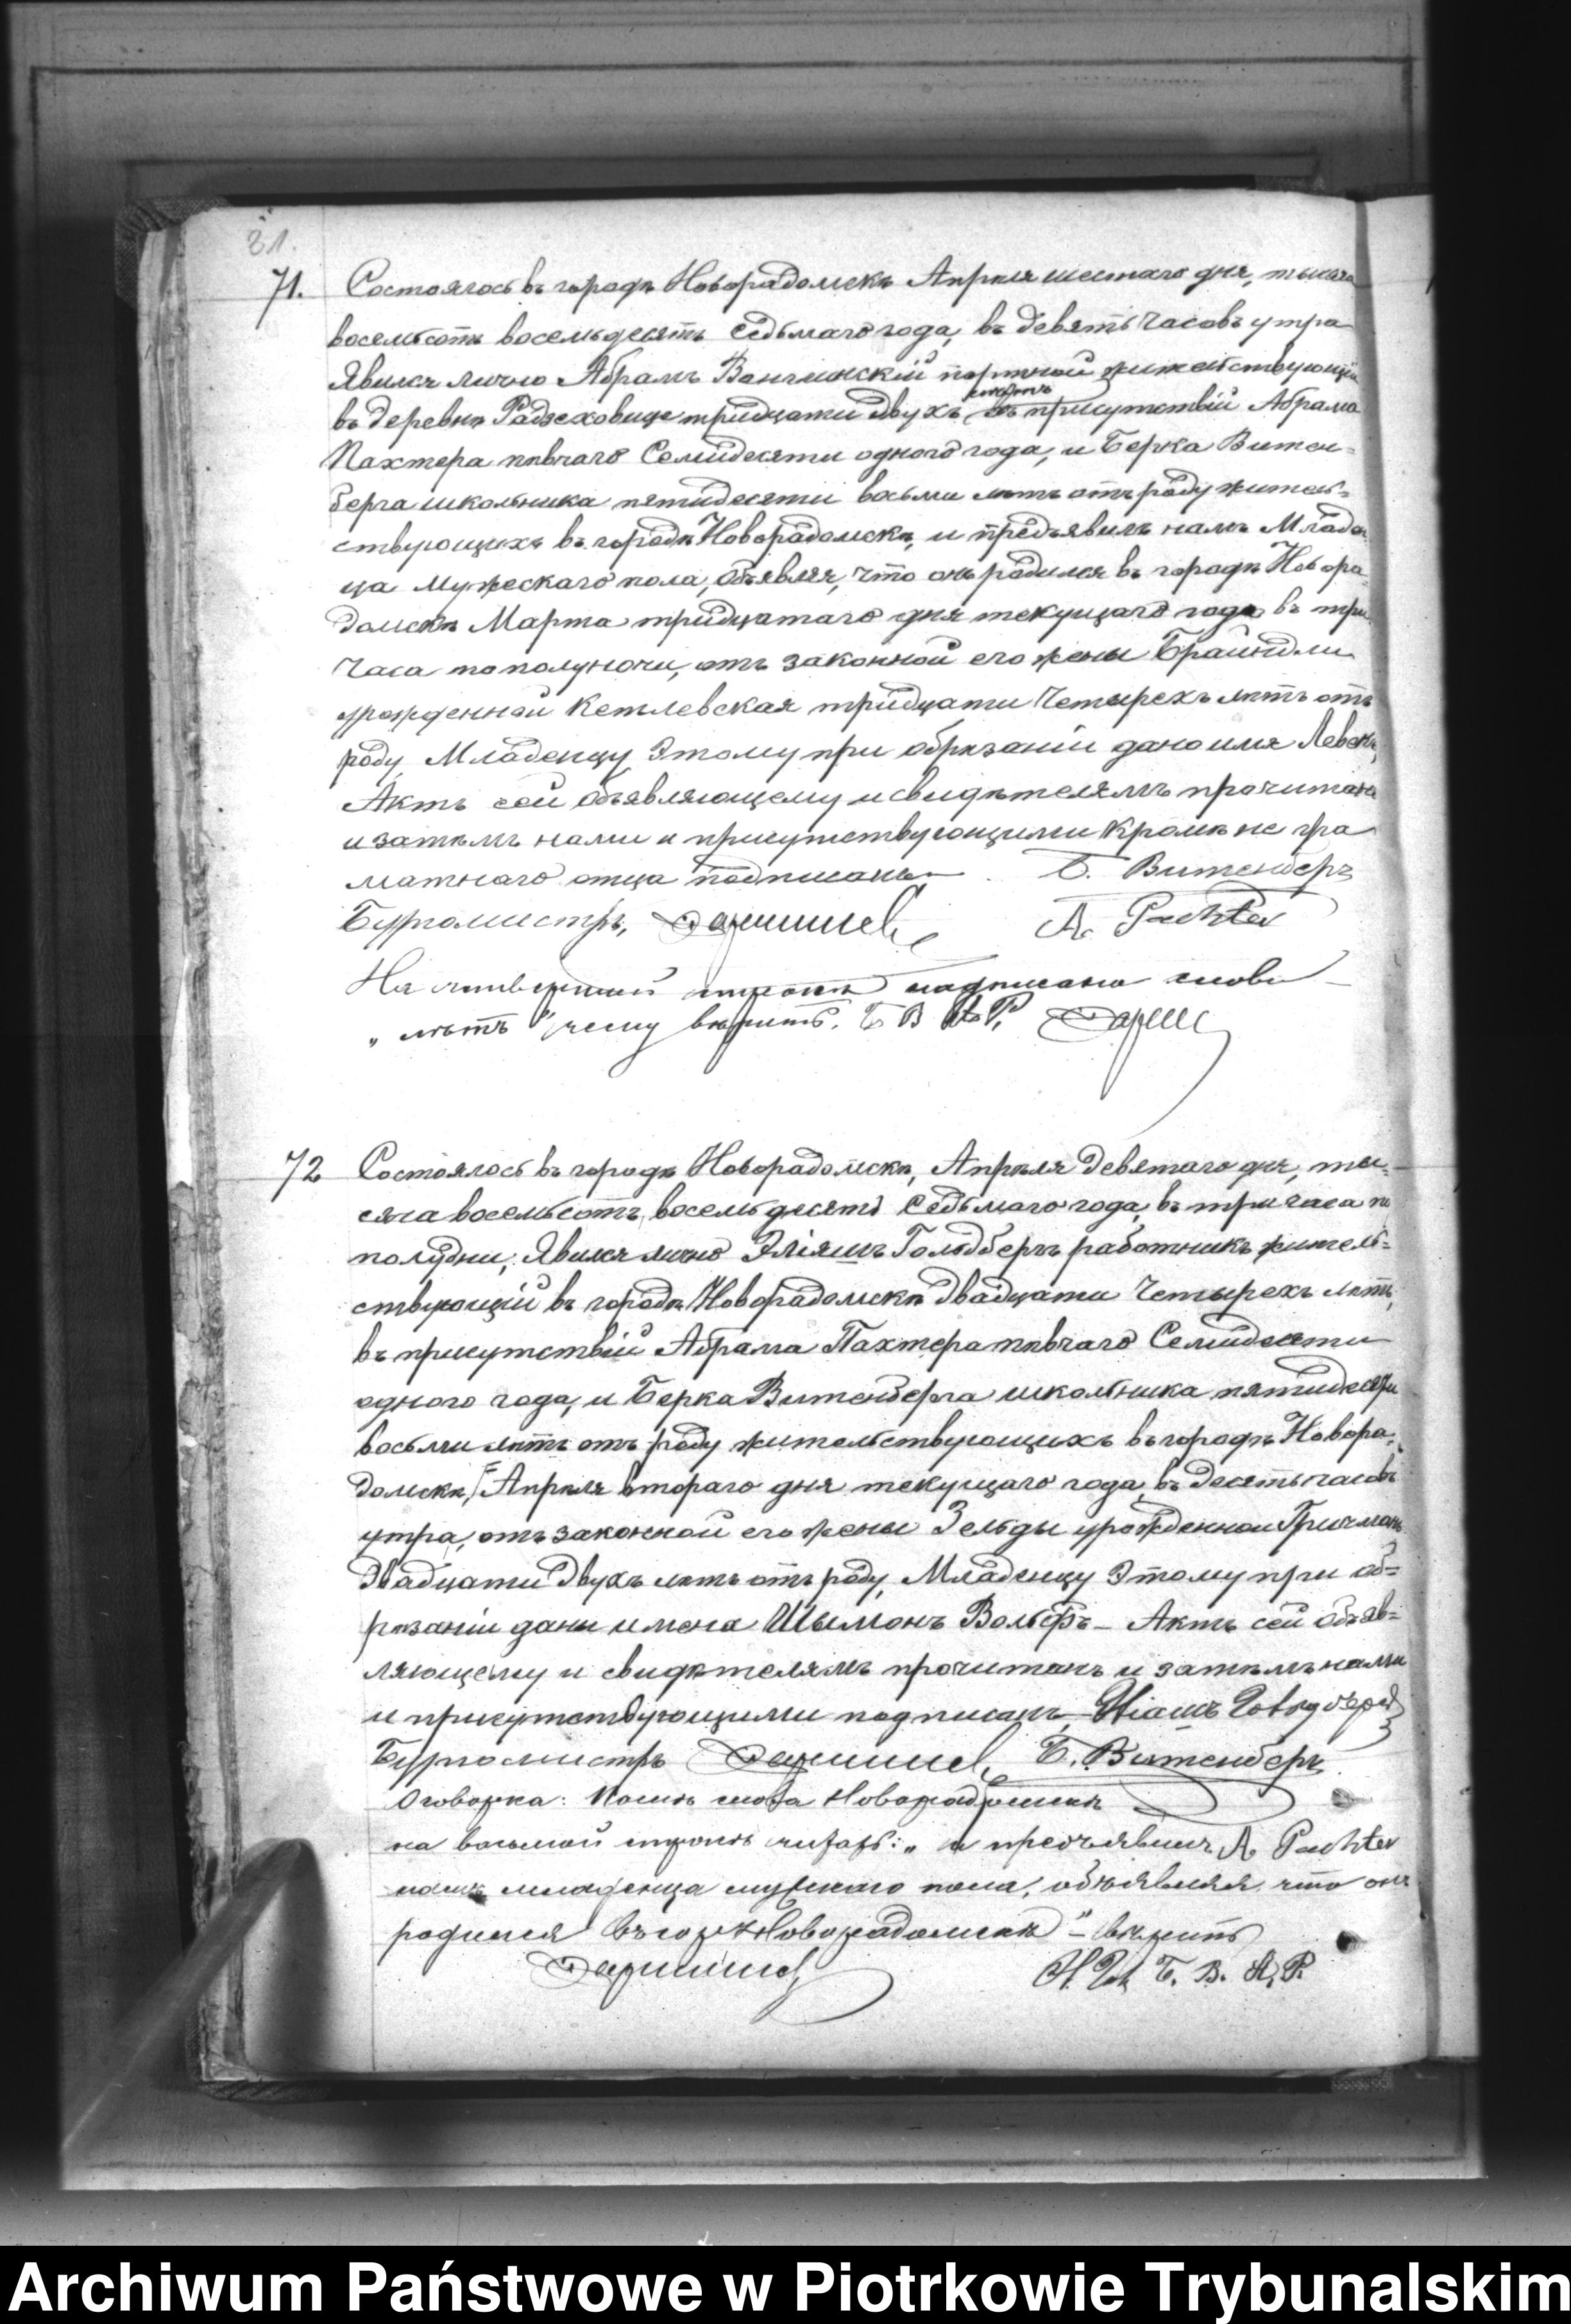 21.
71. Состоялось въ городѣ Новорадомскѣ Апрѣля шестаго дня, тысяча
восемьсотъ восемьдесятъ седьмаго года, въ девять часовъ утра
Явился лично Абрамъ Ванчинскій портной жительствующій
лѣтъ
въ деревнѣ Радзеховице тридцати двухъ въ присутствіи Абрама
Пахтера пѣвчаго Семидесяти одного года, и Берка Витен-
берга школьника пятидесяти восьми лѣтъ отъ роду житель-
ствующихъ въ городѣ Новорадомскѣ, и предъявилъ намъ Младен
ца Мужескаго пола, объявляя, что онъ родился въ городѣ Новора-
домскѣ Марта тридцатаго дня текущаго года въ три
часа пополуночи, отъ законной его жены Брайндли
урожденной Кетлевская тридцати Четырехъ лѣтъ отъ
роду Младенцу Этому при обрѣзаніи дано имя Левекъ,
Актъ сей объявляющему и свидѣтелямъ прочитанъ
и затѣмъ нами и присутствующими кромѣ не гра
мотнаго отца подписанъ Б. Витенберъ
Бургомистръ, A. Pachter
На четвертой строкѣ надписано слово
„лѣтъ" чему вѣрить. Б В A. P.
72 Состоялось въ городѣ Новорадомскѣ, Апрѣля девятаго дня, ты-
сяча восемьсотъ восемьдесятъ седьмаго года, въ три часа по
полудни, Явился лично Эліяшъ Гольдбергъ работникъ житель-
ствующій въ городѣ Новорадомскѣ двадцати Четырехъ лѣтъ,
въ присутствіи Абрама Пахтера пѣвчаго Семидесяти
одного года, и Берка Витенберга школьника пятидесяти
восьми лѣтъ отъ роду жительствующихъ въ городѣ Новора-
домскѣ, Апрѣля втораго дня текущаго года, въ десять часовъ
утра, отъ законной его жены Зельды урожденной Гричманъ
двадцати двухъ лѣтъ отъ роду, Младенцу Этому при об-
рѣзаніи даны имена Шымонъ Вольфъ - Актъ сей объяв-
ляющему и свидѣтелямъ прочитанъ и затѣмъ нами
и присутствующими подписанъ
Бургомистръ Б. Витенберъ
Оговорка: Послѣ слова Новорадомскѣ
на восьмой строкѣ читать: „и предъявилъ A. Pachter
намъ младенца мужскаго пола, объявляя что онъ
родился въ гор Новорадомскѣ" - вѣрить
Б. В. A. P.
Archiwum Państwowe w Piotrkowie Trybunalskim